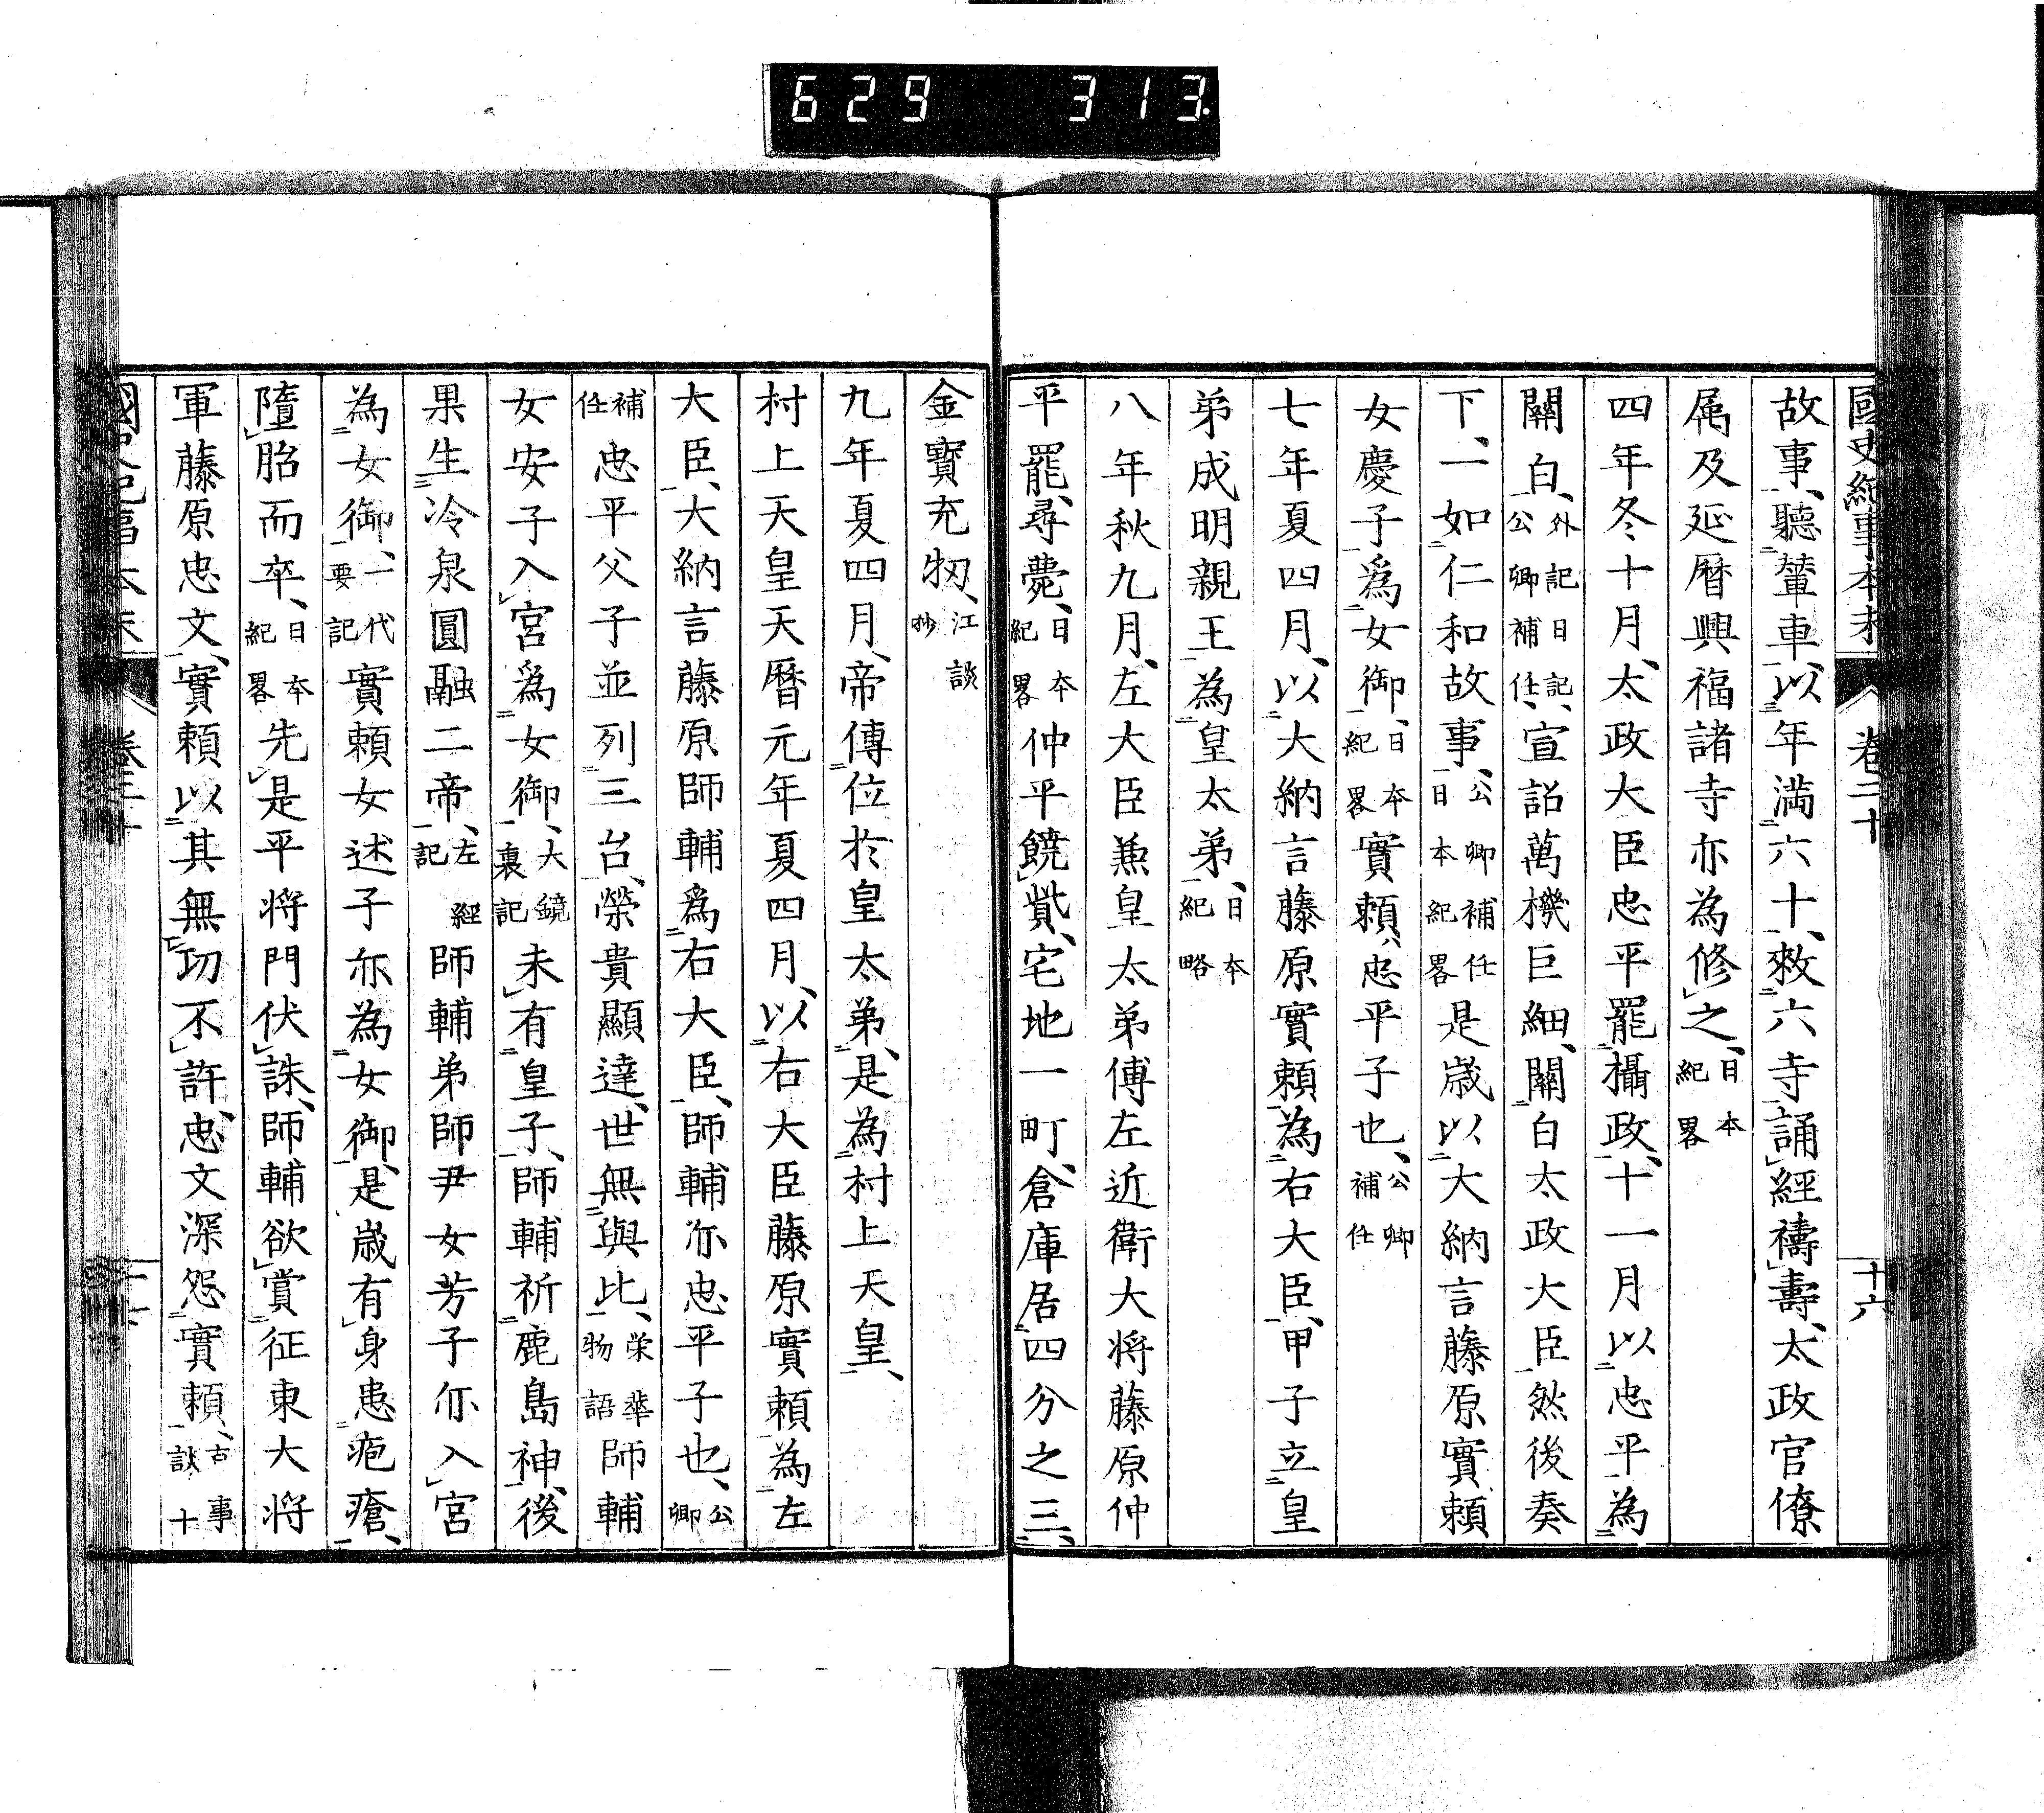 629 313.
國史紀事本末 卷二十 十六
故事、聽輦車、以年満六十、敕六寺誦經禱壽、太政官僚
属及延暦興福諸寺亦為修之、日本紀畧
四年冬十月、太政大臣忠平罷攝政、十一月以忠平為
關白、外記日記、公卿補任、宣詔萬機巨細、關白太政大臣然後奏
下、一如仁和故事、公卿補任日本紀畧是歳以大納言藤原實頼
女慶子爲女御、日本紀畧實頼、忠平子也、公卿補任
七年夏四月、以大納言藤原實頼為右大臣、甲子立皇
弟成明親王為皇太弟、日本紀略
八年秋九月、左大臣兼皇太弟傅左近衛大将藤原仲
平罷、尋薨、日本紀畧仲平饒貲、宅地一町、倉庫居四分之三、
金寶充牣、江談抄
九年夏四月、帝傳位於皇太弟、是為村上天皇、
村上天皇天暦元年夏四月、以右大臣藤原實頼為左
大臣、大納言藤原師輔爲右大臣、師輔亦忠平子也、公卿
補任忠平父子並列三台、榮貴顯達、世無與比、栄華物語師輔
女安子入宮爲女御、大鏡裏記未有皇子、師輔祈鹿島神、後
果生冷泉圓融二帝、左經記師輔弟師尹女芳子亦入宮
為女御、一代要記實頼女述子亦為女御、是歳有身患疱瘡、
墮胎而卒、日本紀畧先是平将門伏誅、師輔欲賞征東大将
軍藤原忠文、實頼以其無功不許、忠文深怨實頼、古事談十